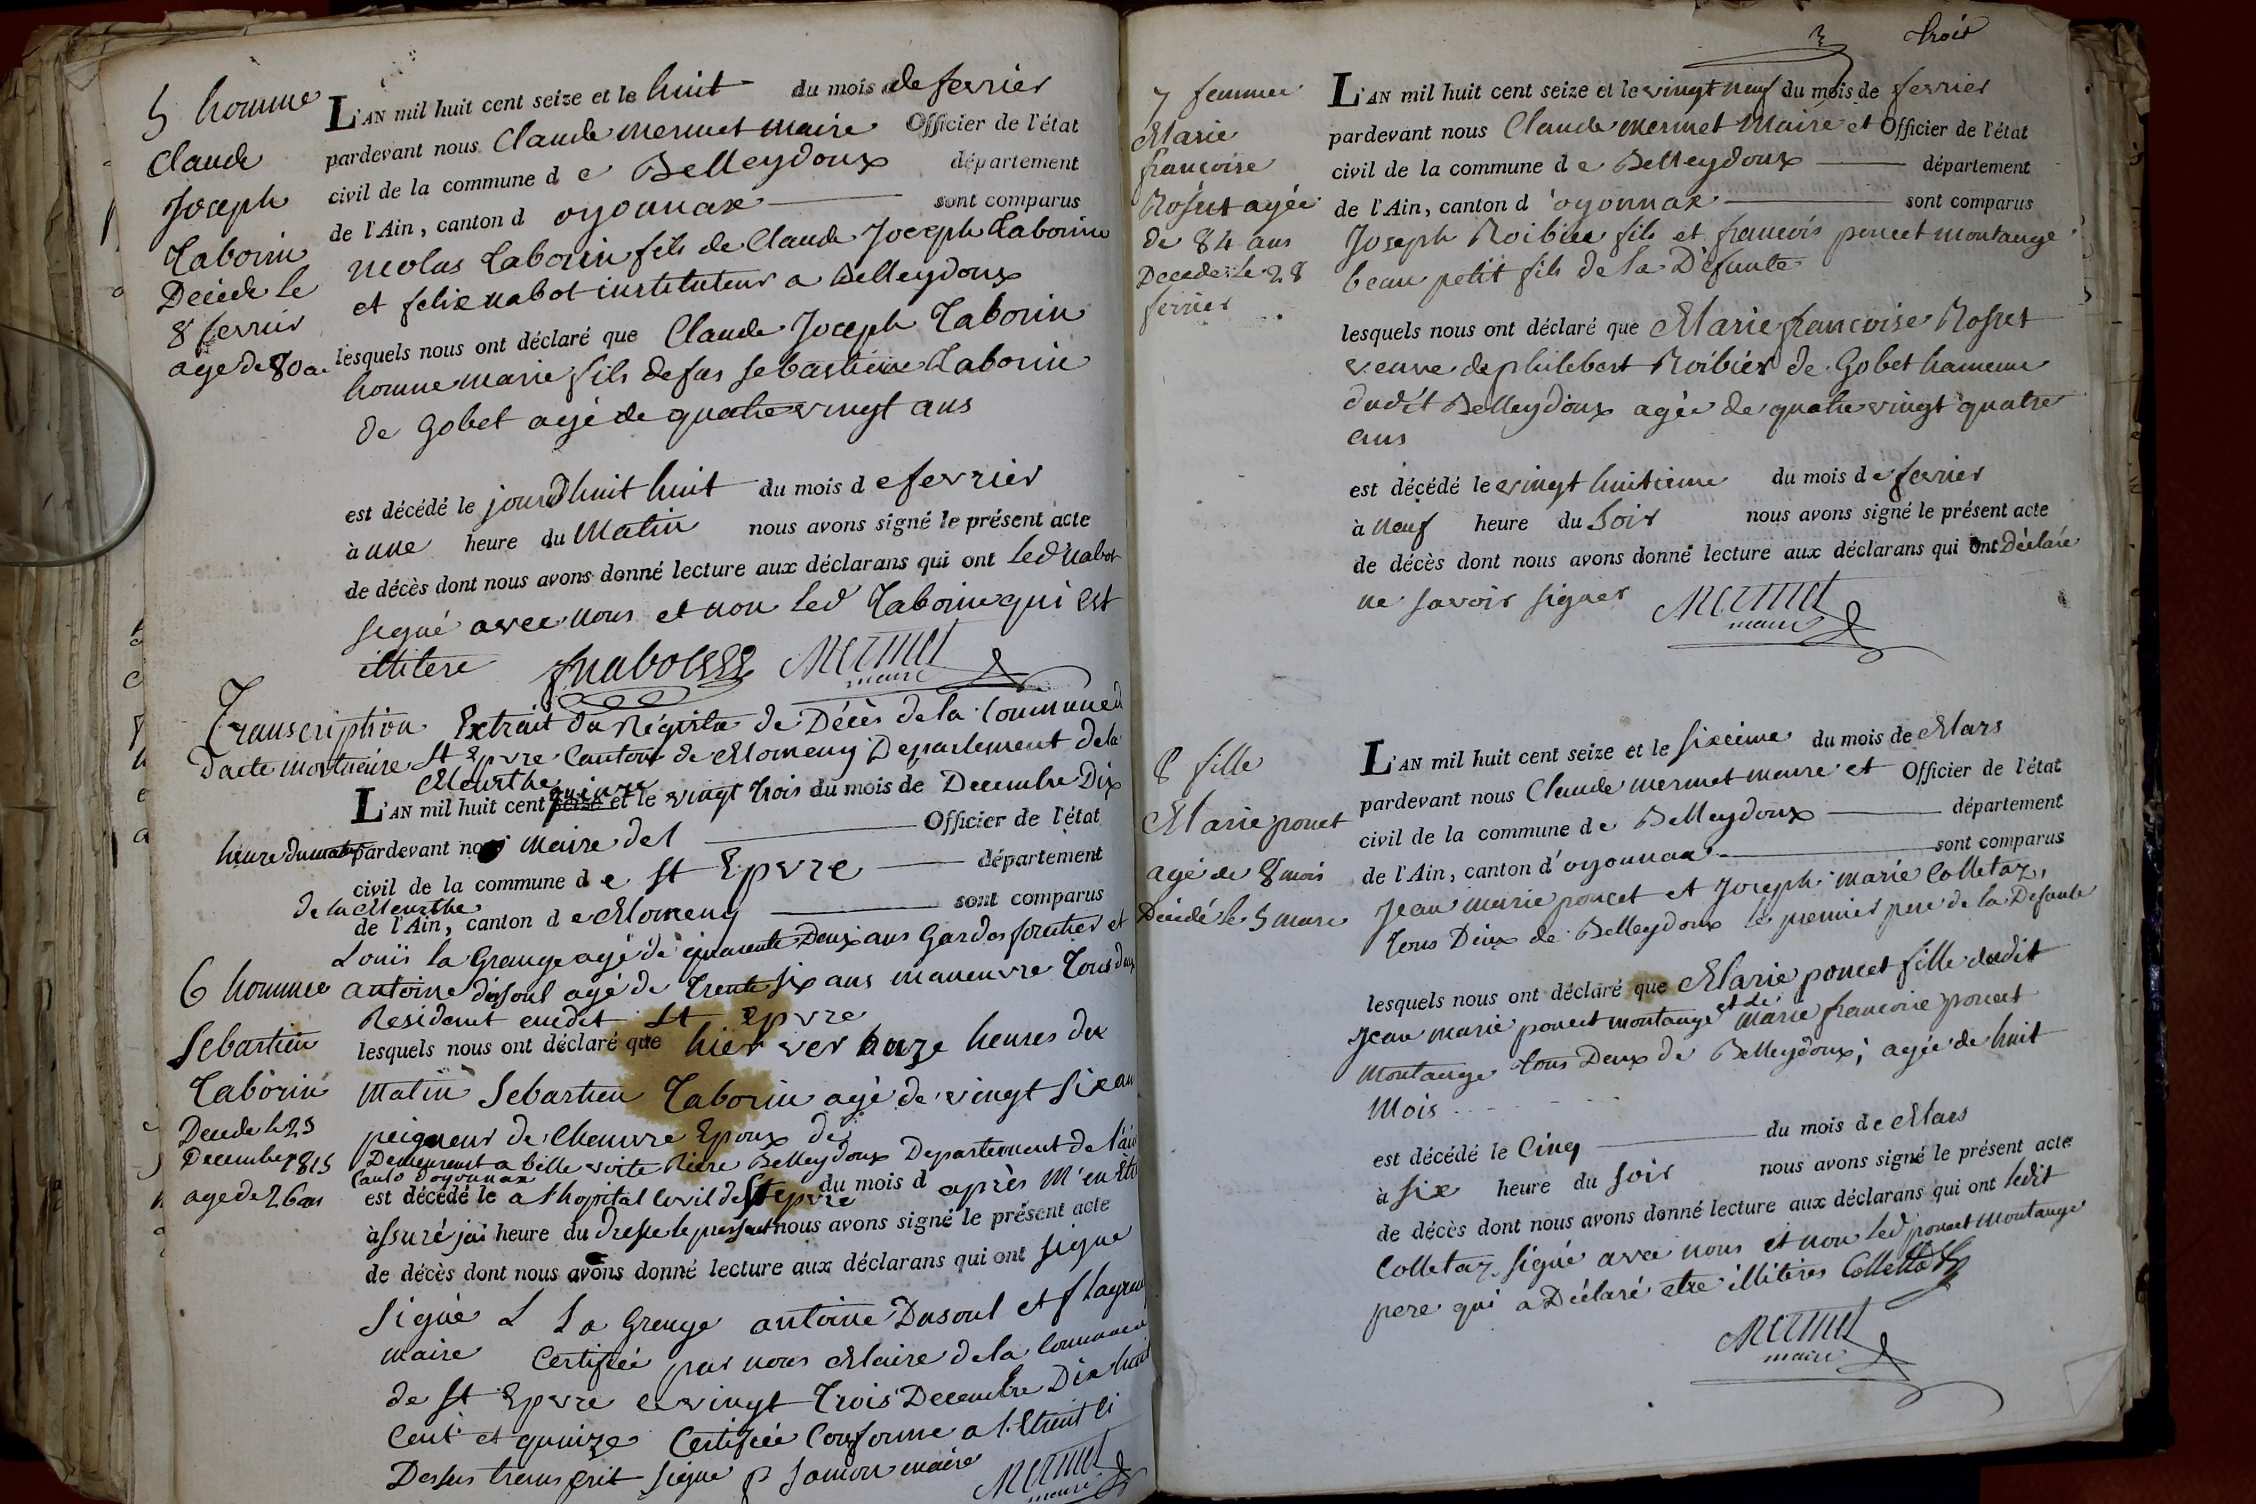 5 homme
Claude
Joseph
Taborin
Décédé le
8 fevrier
age de 80 a
L'AN mil huit cent seize et le huit du mois de fevrier
pardevant nous Claude mermet maire Officier de l'état
civil de la commune d e Belleydoux département
de l'Ain, canton d oyonnax sont comparus
nicolas Taborin fils de Claude Joseph Taborin
et felix nabot instituteur a Belleydoux
lesquels nous ont déclaré que Claude Joseph Taborin
homme marié fils de feu Sebastien Taborin
de Gobet agé de quatre vingt ans
est décédé le jourdhuit huit du mois d e fevrier
à une heure du Matin nous avons signé le présent acte
de décès dont nous avons donné lecture aux déclarans qui ont led nabot
signé avec nous et non led Taborin qui est
illitere fnabot Mermet
maire
Transcription Extrait du Régistre de Décès de la Commune d
d'acte mortuaire St Epvre Canton de Elomeny Departement de la
Meurthe
L'AN mil huit cent quinze seize et le vingt trois du mois de Decembre Dix
heure du matin pardevant nous maire de l Officier de l'état
civil de la commune d e St Epvre département
de la Meurthe
de l'Ain, canton d e Elomeny sont comparus
Louis la Grange agé de quarante Deux ans Gardes forestier et
6 homme
Sebastien
Taborin
Décédé le 23
Decembre 1815
age de 26 ans
antoine dusoul agé de Trente six ans maneuvre Tous deux
Residant audit St Epvre
lesquels nous ont déclaré que hier ver onze heures du
Matin Sebastien Taborin agé de vingt six an
peigneur de Chanvre Epoux de
Demeurant a belle voite Riere Belleydoux Departement de l'ain
Canto D'oyonnax
est décédé le a l'hopital Civil de St epvre du mois d après M'en etre
à assuré jai heure du dressé le present nous avons signé le présent acte
de décès dont nous avons donné lecture aux déclarans qui ont signe
signé L La Grange antoine Dusoul et f lagrang
maire Certifiée par nous Maire de la Commune
de St Epvre ce vingt Trois Decembre Dix huit
Cent et quinze Certifiée Conforme a l'Etrait Ci
Dessus transcrit signe p Samon maire Mermet
maire
3 trois
7 femme
Marie
francoise
Rosset agée
de 84 ans
Decede le 28
fevrier
L'AN mil huit cent seize et le vingt neuf du mois de fevrier
pardevant nous Claude mermet Maire et Officier de l'état
civil de la commune d e Belleydoux département
de l'Ain, canton d 'oyonnax sont comparus
Joseph Roibier fils et francois poncet montange
beau petit fils de la Défunte
lesquels nous ont déclaré que Marie francoise Rosset
veuve de philebert Roibier de Gobet hameau
dudit Belleydoux agée de quatre vingt quatre
ans
est décédé le vingt huitieme du mois d e fevrier
à neuf heure du Soir nous avons signé le présent acte
de décès dont nous avons donné lecture aux déclarans qui ont Déclaré
ne savoir signer Mermet
maire
8 fille
Marie poncet
agé de 8 mois
Décédé le 5 mars
L'AN mil huit cent seize et le sixieme du mois de Mars
pardevant nous Claude mermet maire et Officier de l'état
civil de la commune d e Belleydoux département
de l'Ain, canton d 'oyonnax sont comparus
Jean marie poncet et Joseph marie Colletaz,
tous Deux de Belleydoux le premier pere de la Defunte
lesquels nous ont déclaré que Marie poncet fille dudit
Jean marie poncet montange et de marie francoise poncet
montange tous Deux de Belleydoux, agée de huit
Mois
est décédé le Cinq du mois d e Mars
à six heure du soir nous avons signé le présent acte
de décès dont nous avons donné lecture aux déclarans qui ont ledit
Colletaz signé avec nous et non led poncet montange
pere qui a Déclaré etre illiteres Colletaz
Mermet
maire